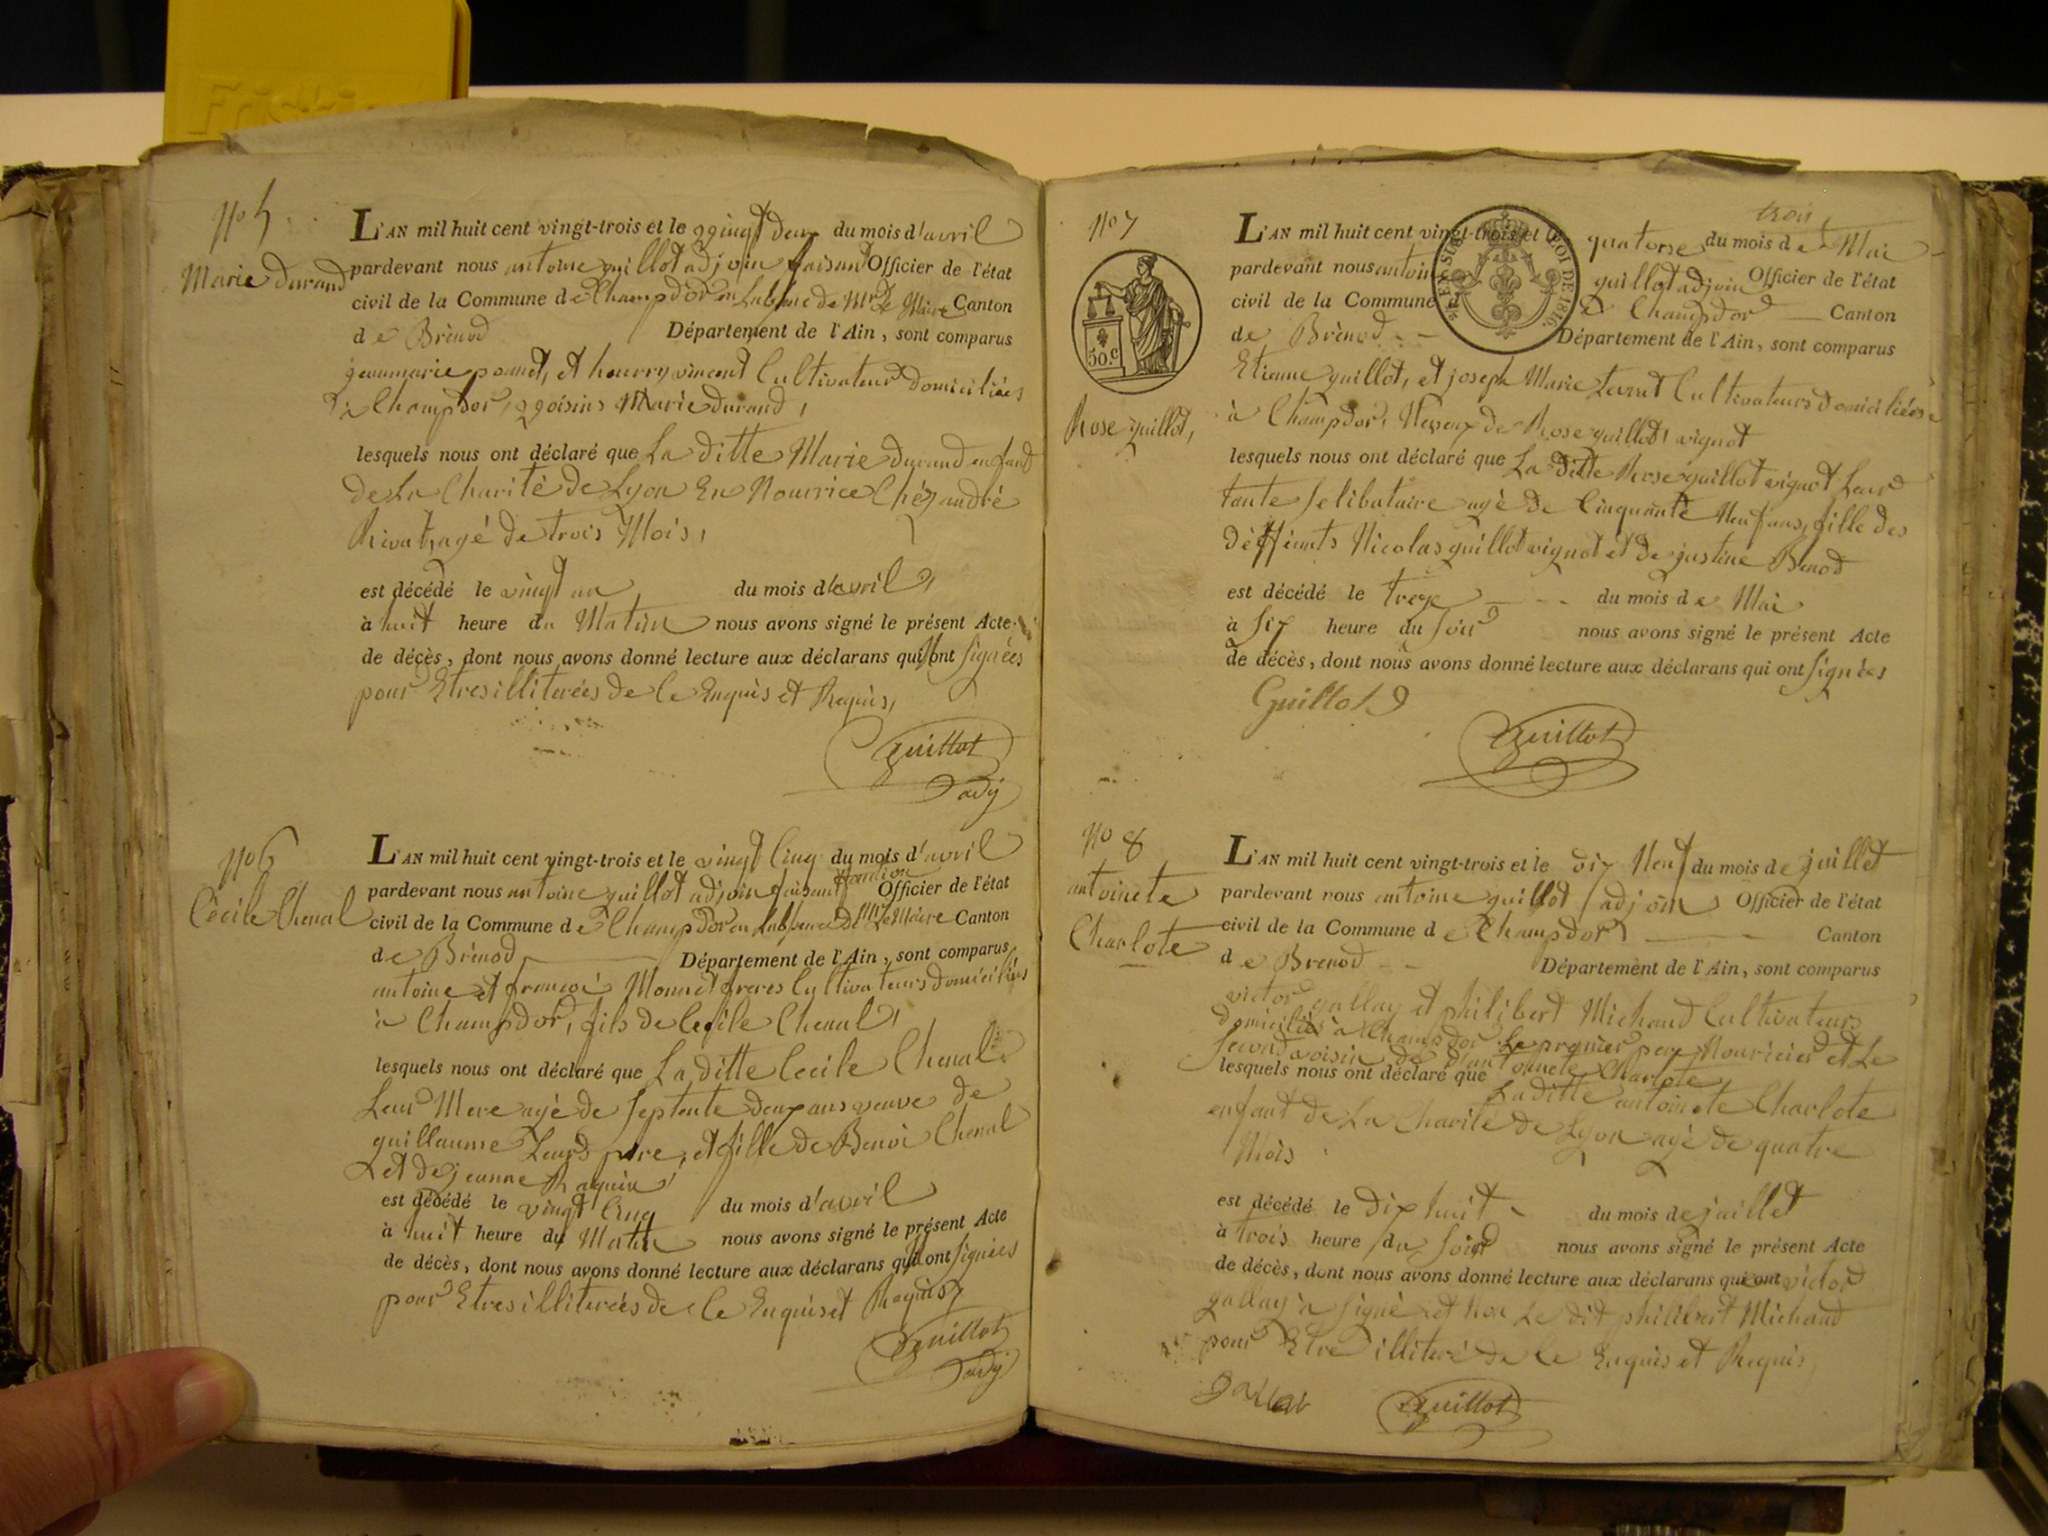 No 5
Marie durand
L'AN mil huit cent vingt-trois et le vingt deux du mois d'avril
pardevant nous antoine guillot adjoin faisant Officier de l'état
civil de la Commune de Champdor en Labsence de Mr le Maire Canton
de Brénod Département de l'Ain, sont comparus
jeanmarie et vincent Cultivateurs domiciliées
à Champdor, voisins Marie durand,
lesquels nous ont déclaré que La ditte Marie durand enfant
de La Charité de Lyon En Nourrice Chéz andré
Rivat, agé de trois Mois,
est décédé le vingt un du mois d'avril
à huit heure du Matin nous avons signé le présent Acte
de décès, dont nous avons donné lecture aux déclarans qui ont signées
pour Etres illiterées de ce Enquis et Requis,
Guillot
adj
No 6
Cécile Chenal
L'AN mil huit cent vingt-trois et le vingt Cinq du mois d'avril
pardevant nous antoine guillot adjoin faisant fonction Officier de l'état
civil de la Commune de Champdor en Labsence de Mr Le Maire Canton
de Brénod Département de l'Ain, sont comparus
antoine et françoi Monnet freres Cultivateurs domiciliés
à Champdor, fils de Cecile Chenal,
lesquels nous ont déclaré que La ditte Cecile Chenal
Leur Mere agé de septente deux ans veuve de
guillaume Leurs pere, et fille de Benoi Chenal
et de jeanne
est décédé le vingt Cinq du mois d'avril
à huit heure du Matin nous avons signé le présent Acte
de décès, dont nous avons donné lecture aux déclarans qui ont signées
pour Etres illiterées de ce Enquis et Requis
Guillot
adj
No 7
50 c
Rose guillot,
L'AN mil huit cent vingt-trois et le quatorse trois du mois de Mai
pardevant nous antoine guillot adjoin Officier de l'état
civil de la Commune de Champdor Canton
de Brénod Département de l'Ain, sont comparus
LOI DE 1816
Etienne guillot, et joseph Marie Cultivateurs domiciliées
à Champdor, Neveux de Rose guillot vignot
lesquels nous ont déclaré que La ditte Rose guillot vignot Leur
tante selibataire agé de Cinquante Neuf ans, fille des
défficients Nicolas guillot vignot et de justine
est décédé le treze du mois de Mai
à six heure du soir nous avons signé le présent Acte
de décès, dont nous avons donné lecture aux déclarans qui ont signées
Guillot
Guillot
No 8
antoinete
Charlote
L'AN mil huit cent vingt-trois et le dix Neuf du mois de juillet
pardevant nous antoine guillot adjoin Officier de l'état
civil de la Commune de Champdor Canton
de Brénod Département de l'Ain, sont comparus
victor gallay et philibert Michaud Cultivateurs
domiciliés à Champdor Le premier pere Nouricier et Le
second voisin de d'antoinete Charlote
lesquels nous ont déclaré que La ditte antoinete Charlote
enfant de La Charité de Lyon agé de quatre
Mois
est décédé le dix huit du mois de juillet
à trois heure du soir nous avons signé le présent Acte
de décès, dont nous avons donné lecture aux déclarans qui ont victor
gallay a signé et non Le dit philibert Michaud
pour Etre illiteré de ce Enquis et Requis
Guillot